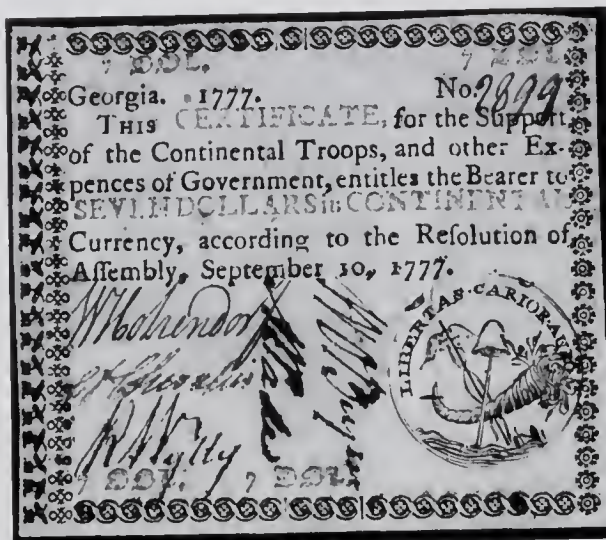 7 DOL. 7 DOL.
Georgia. 1777. No. 2899
THIS CERTIFICATE, for the Support
of the Continental Troops, and other Ex-
pences of Government, entitles the Bearer to
SEVEN DOLLARS in CONTINENTAL
Currency, according to the Reſolution of
Aſſembly, September 10, 1777.
LIBERTAS·CARIOR·AURO
Wm Holsendorf
R Wylly
7 DOL. 7 DOL.